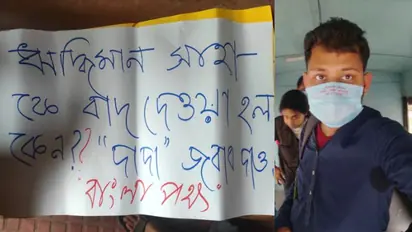 ঋদ্ধিমান সাহা
কে বাদ দেওয়া হল
কেন?? "দাদা" জবাব দাও
বাংলা পক্ষ